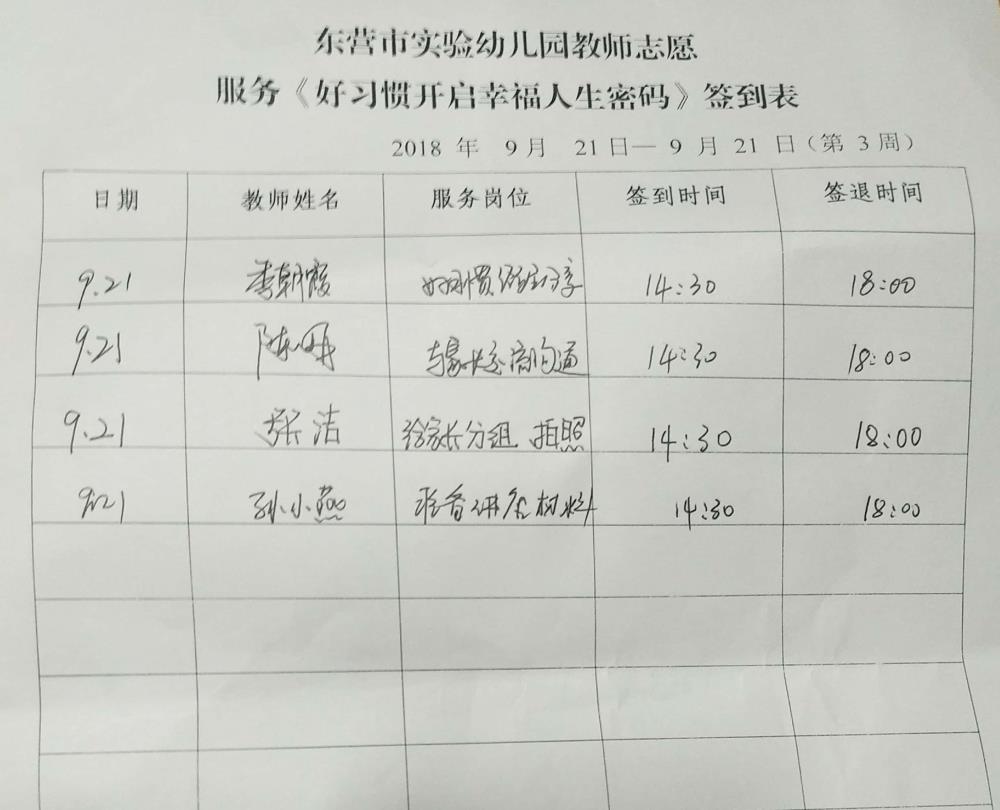 东营市实验幼儿园教师志愿
服务《好习惯开启幸福人生密码》签到表
2018 年 9月 21日— 9 月 21 日（第 3 周）
日期 教师姓名 服务岗位 签到时间 签退时间
9.21 李朝霞 好习惯经验分享 14:30 18:00
9.21 陈 与家长交流沟通 14:30 18:00
9.21 张洁 给家长分组 拍照 14:30 18:00
9.21 孙小燕 准备讲座材料 14:30 18:00